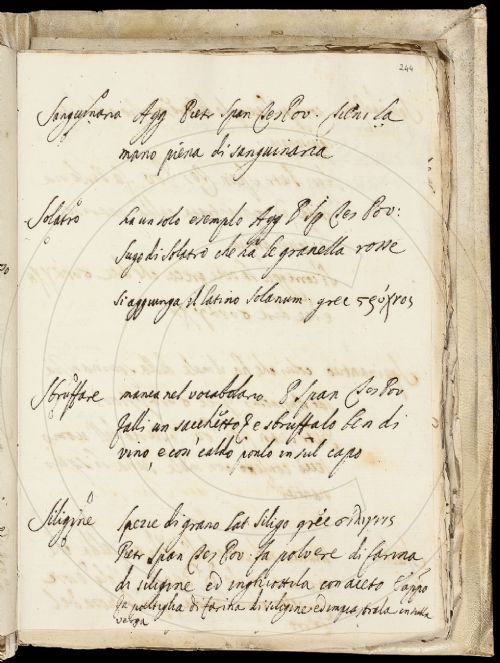 244
Sanguinaria Agg Pietr Span Tes Pov. tieni la
mano piena di sanguinaria
Solatro ha un solo exemplo Agg P Sp Tes Pov:
sugo di solatro che ha le granella rosse
si aggiunga il latino Solanum. grec
Sbruffare manca nel vocabolario. P Span Tes Pov
falli un sacchetto e sbruffalo ben di
vino, e con caldo ponlo in sul capo
Siligine spezie di grano lat Siligo grec
Pietr Span Tes Pov. fa polvere di farina
di siligine ed inghiottila con aceto
fa poltiglia di farina di siligine ed